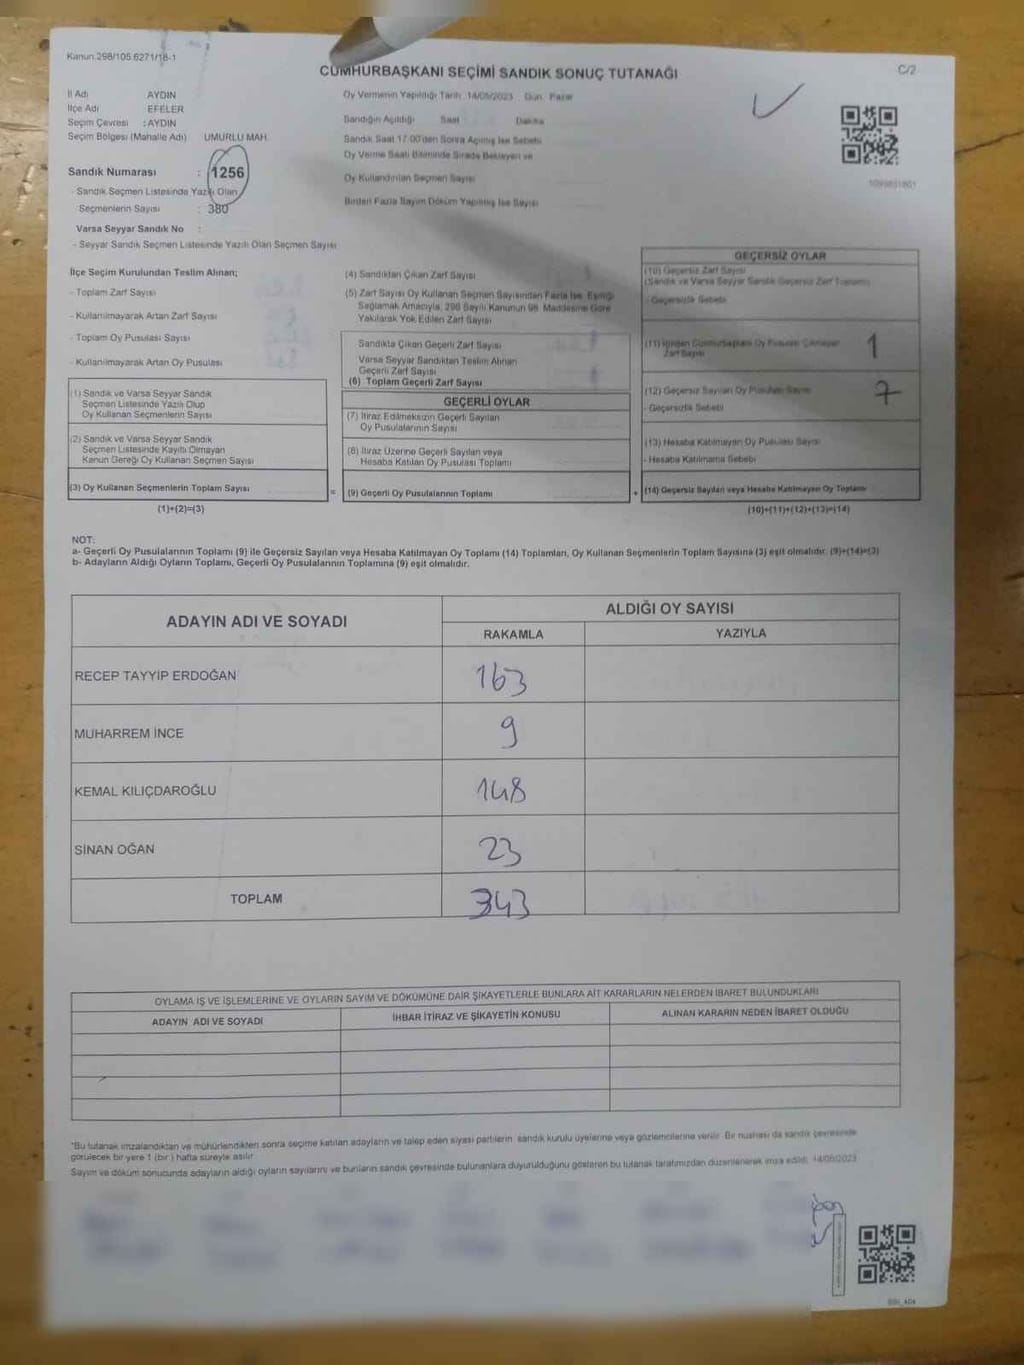 Kanun.298/105.6271/18-1
CUMHURBAŞKANI SEÇİMİ SANDIK SONUÇ TUTANAĞI
C/2
İl Adı AYDIN
İlçe Adı EFELER
Seçim Çevresi : AYDIN
Seçim Bölgesi (Mahalle Adı) UMURLU MAH.
Sandık Numarası : 1256
- Sandık Seçmen Listesinde Yazılı Olan
Seçmenlerin Sayısı : 380
Varsa Seyyar Sandık No :
- Seyyar Sandık Seçmen Listesinde Yazılı Olan Seçmen Sayısı
Oy Vermenin Yapıldığı Tarih: 14/05/2023 Gün: Pazar
Sandığın Açıldığı Saat Dakika
Sandık Saat 17.00'den Sonra Açılmış İse Sebebi
Oy Verme Saati Bitiminde Sırada Bekleyen ve
Oy Kullandırılan Seçmen Sayısı
Birden Fazla Sayım Döküm Yapılmış İse Sayısı
İlçe Seçim Kurulundan Teslim Alınan;
- Toplam Zarf Sayısı
- Kullanılmayarak Artan Zarf Sayısı
- Toplam Oy Pusulası Sayısı
- Kullanılmayarak Artan Oy Pusulası
(1) Sandık ve Varsa Seyyar Sandık
Seçmen Listesinde Yazılı Olup
Oy Kullanan Seçmenlerin Sayısı
(2) Sandık ve Varsa Seyyar Sandık
Seçmen Listesinde Kayıtlı Olmayan
Kanun Gereği Oy Kullanan Seçmen Sayısı
(3) Oy Kullanan Seçmenlerin Toplam Sayısı
(1)+(2)=(3)
(4) Sandıktan Çıkan Zarf Sayısı
(5) Zarf Sayısı Oy Kullanan Seçmen Sayısından Fazla İse, Eşitliği
Sağlamak Amacıyla, 298 Sayılı Kanunun 98. Maddesine Göre
Yakılarak Yok Edilen Zarf Sayısı
Sandıkta Çıkan Geçerli Zarf Sayısı
Varsa Seyyar Sandıktan Teslim Alınan
Geçerli Zarf Sayısı
(6) Toplam Geçerli Zarf Sayısı
GEÇERLİ OYLAR
(7) İtiraz Edilmeksizin Geçerli Sayılan
Oy Pusulalarının Sayısı
(8) İtiraz Üzerine Geçerli Sayılan veya
Hesaba Katılan Oy Pusulası Toplamı
= (9) Geçerli Oy Pusulalarının Toplamı +
GEÇERSİZ OYLAR
(10) Geçersiz Zarf Sayısı
(Sandık ve Varsa Seyyar Sandık Geçersiz Zarf Toplamı)
- Geçersizlik Sebebi
(11) İçinden Cumhurbaşkanı Oy Pusulası Çıkmayan
Zarf Sayısı 1
(12) Geçersiz Sayılan Oy Pusulası Sayısı 7
- Geçersizlik Sebebi
(13) Hesaba Katılmayan Oy Pusulası Sayısı
- Hesaba Katılmama Sebebi
(14) Geçersiz Sayılan veya Hesaba Katılmayan Oy Toplamı
(10)+(11)+(12)+(13)=(14)
NOT:
a- Geçerli Oy Pusulalarının Toplamı (9) ile Geçersiz Sayılan veya Hesaba Katılmayan Oy Toplamı (14) Toplamları, Oy Kullanan Seçmenlerin Toplam Sayısına (3) eşit olmalıdır. (9)+(14)=(3)
b- Adayların Aldığı Oyların Toplamı, Geçerli Oy Pusulalarının Toplamına (9) eşit olmalıdır.
ADAYIN ADI VE SOYADI ALDIĞI OY SAYISI
RAKAMLA YAZIYLA
RECEP TAYYİP ERDOĞAN 163
MUHARREM İNCE 9
KEMAL KILIÇDAROĞLU 148
SİNAN OĞAN 23
TOPLAM 343
OYLAMA İŞ VE İŞLEMLERİNE VE OYLARIN SAYIM VE DÖKÜMÜNE DAİR ŞİKAYETLERLE BUNLARA AİT KARARLARIN NELERDEN İBARET BULUNDUKLARI
ADAYIN ADI VE SOYADI İHBAR İTİRAZ VE ŞİKAYETİN KONUSU ALINAN KARARIN NEDEN İBARET OLDUĞU
*Bu tutanak imzalandıktan ve mühürlendikten sonra seçime katılan adayların ve talep eden siyasi partilerin sandık kurulu üyelerine veya gözlemcilerine verilir. Bir nüshası da sandık çevresinde
görülecek bir yere 1 (bir) hafta süreyle asılır.
Sayım ve döküm sonucunda adayların aldığı oyların sayılarını ve bunların sandık çevresinde bulunanlara duyurulduğunu gösteren bu tutanak tarafımızdan düzenlenerek imza edildi. 14/05/2023